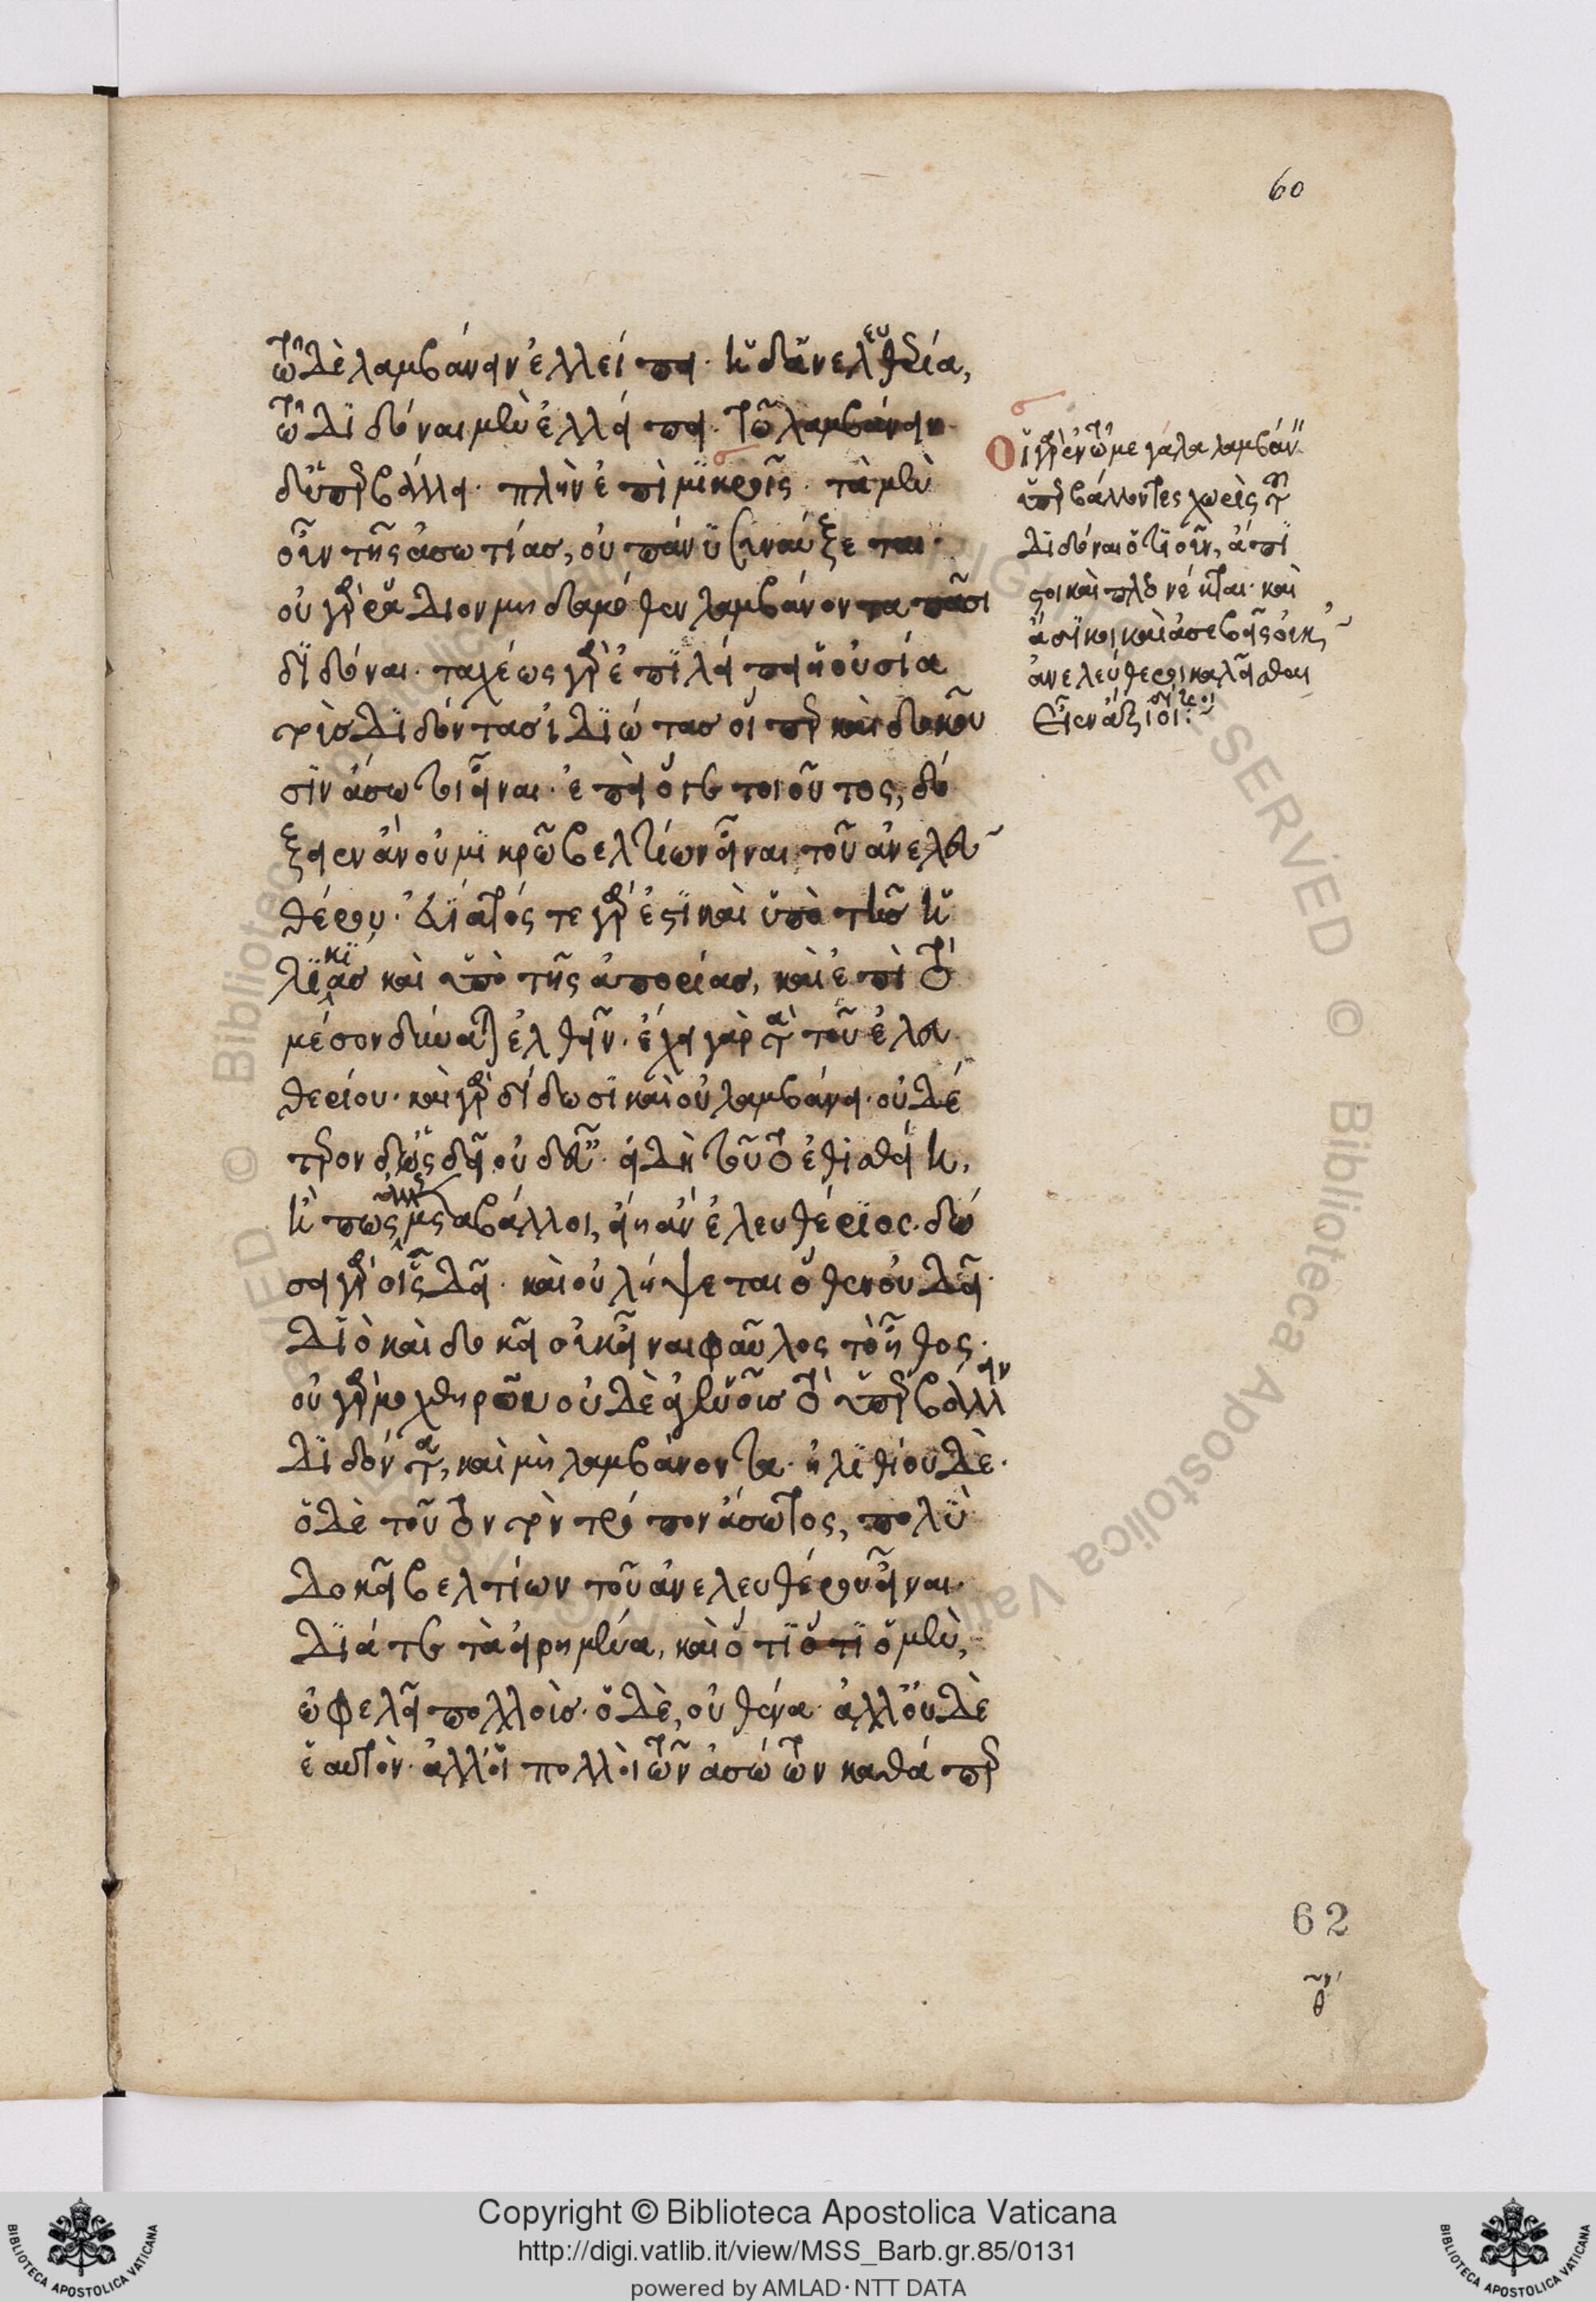 60
τῷ δὲ λαμβάνειν ἐλλείπει· ἡ δ' ἀνελευθερία,
τῷ διδόναι μὲν ἐλλείπει· τῷ λαμβάνειν
δ' ὑπερβάλλει· πλὴν ἐπὶ μικροῖς· τὰ μὲν
οὖν τῆς ἀσωτίας, οὐ πάνυ συναύξεται·
οὐ γὰρ ῥᾴδιον μηδαμόθεν λαμβάνοντα πᾶσι
διδόναι· ταχέως γὰρ ἐπιλείπει ἡ οὐσία
τοὺς διδόντας ἰδιώτας οἵπερ καὶ δοκοῦ
σιν ἄσωτοι εἶναι· ἐπεὶ ὅγε τοιοῦτος, δό
ξειεν ἂν οὐ μικρῷ βελτίων εἶναι τοῦ ἀνελευ
θέρου· εὐίατός τε γάρ ἐστι καὶ ὑπὸ τῆς ἡ
λικίας καὶ ὑπὸ τῆς ἀπορίας, καὶ ἐπὶ τὸ
μέσον δύναται ἐλθεῖν· ἔχει γὰρ τὰ τοῦ ἐλευ
θερίου· καὶ γὰρ δίδωσι καὶ οὐ λαμβάνει· οὐδέ
τερον δ' ὡς δεῖ οὐδ' εὖ· εἰ δὴ τοῦτο ἐθισθείη,
ἤ πως ἄλλως μεταβάλλοι, εἴη ἂν ἐλευθέριος· δώ
σει γὰρ οἷς δεῖ· καὶ οὐ λήψεται ὅθεν οὐ δεῖ·
διὸ καὶ δοκεῖ οὐκ εἶναι φαῦλος τὸ ἦθος·
οὐ γὰρ μοχθηροῦ οὐδὲ ἀγεννοῦς τὸ ὑπερβάλλειν
διδόντα, καὶ μὴ λαμβάνοντα· ἠλιθίου δέ·
ὁ δὲ τοῦτον τὸν τρόπον ἄσωτος, πολὺ
δοκεῖ βελτίων τοῦ ἀνελευθέρου εἶναι·
διά τε τὰ εἰρημένα, καὶ ὅτι ὅτι ὁ μὲν,
ὠφελεῖ πολλούς· ὁ δὲ, οὐθένα· ἀλλ' οὐδὲ
ἑαυτόν· ἀλλ' οἱ πολλοὶ τῶν ἀσώτων καθάπερ
Οἱ γὰρ ἐν τῷ μεγάλα λαμβάνειν
ὑπερβάλλοντες χωρὶς τοῦ
διδόναι ὁτιοῦν, ἄπι
στοι καὶ πλεονέκται· καὶ
ἄδικοι καὶ ἀσεβεῖς οὐκ
ἀνελεύθεροι καλεῖσθαι
εἶεν ἄξιοι
62
Copyright © Biblioteca Apostolica Vaticana
http://digi.vatlib.it/view/MSS_Barb.gr.85/0131
powered by AMLAD·NTT DATA